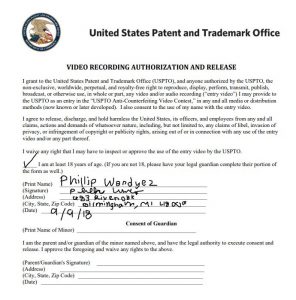 United States Patent and Trademark Office
VIDEO RECORDING AUTHORIZATION AND RELEASE
I grant to the United States Patent and Trademark Office (USPTO), and anyone authorized by the USPTO,
the non-exclusive, worldwide, perpetual, and royalty-free right to reproduce, display, perform, transmit, publish,
broadcast, or otherwise use, in whole or part, any video and/or audio recording ("entry video") I may provide to
the USPTO as an entry in the "USPTO Anti-Counterfeiting Video Contest," in any and all media or distribution
methods (now known or later developed). I also consent to the use of my name with the entry video.
I agree to release, discharge, and hold harmless the United States, its officers, and employees from any and all
claims, actions and demands of whatsoever nature, including, but not limited to, any claims of libel, invasion of
privacy, or infringement of copyright or publicity rights, arising out of or in connection with any use of the entry
video and/or any part thereof.
I waive any right that I may have to inspect or approve the entry video by the USPTO.
I am at least 18 years of age. (If you are not 18, please have your legal guardian complete their portion of
the form as well.)
(Print Name) Phillip Wardyez
(Signature)
(Address)
(City, State, Zip Code) Birmingham, MI
(Date) 9/9/18
Consent of Guardian
(Print Name of Minor)
I am the parent and/or guardian of the minor named above, and have the legal authority to execute consent and
release. I approve the foregoing and waive any rights to the above.
(Parent/Guardian's Signature)
(Address)
(City, State, Zip Code)
(Date)